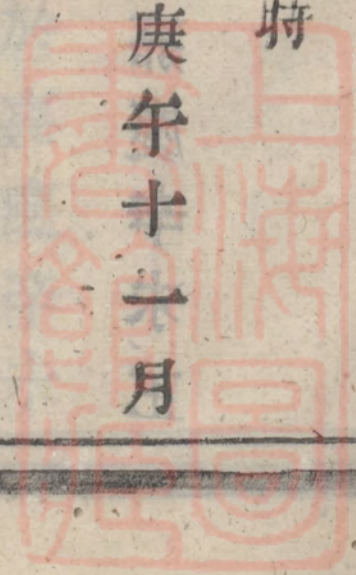 時
庚午十一月
上海圖
書館藏